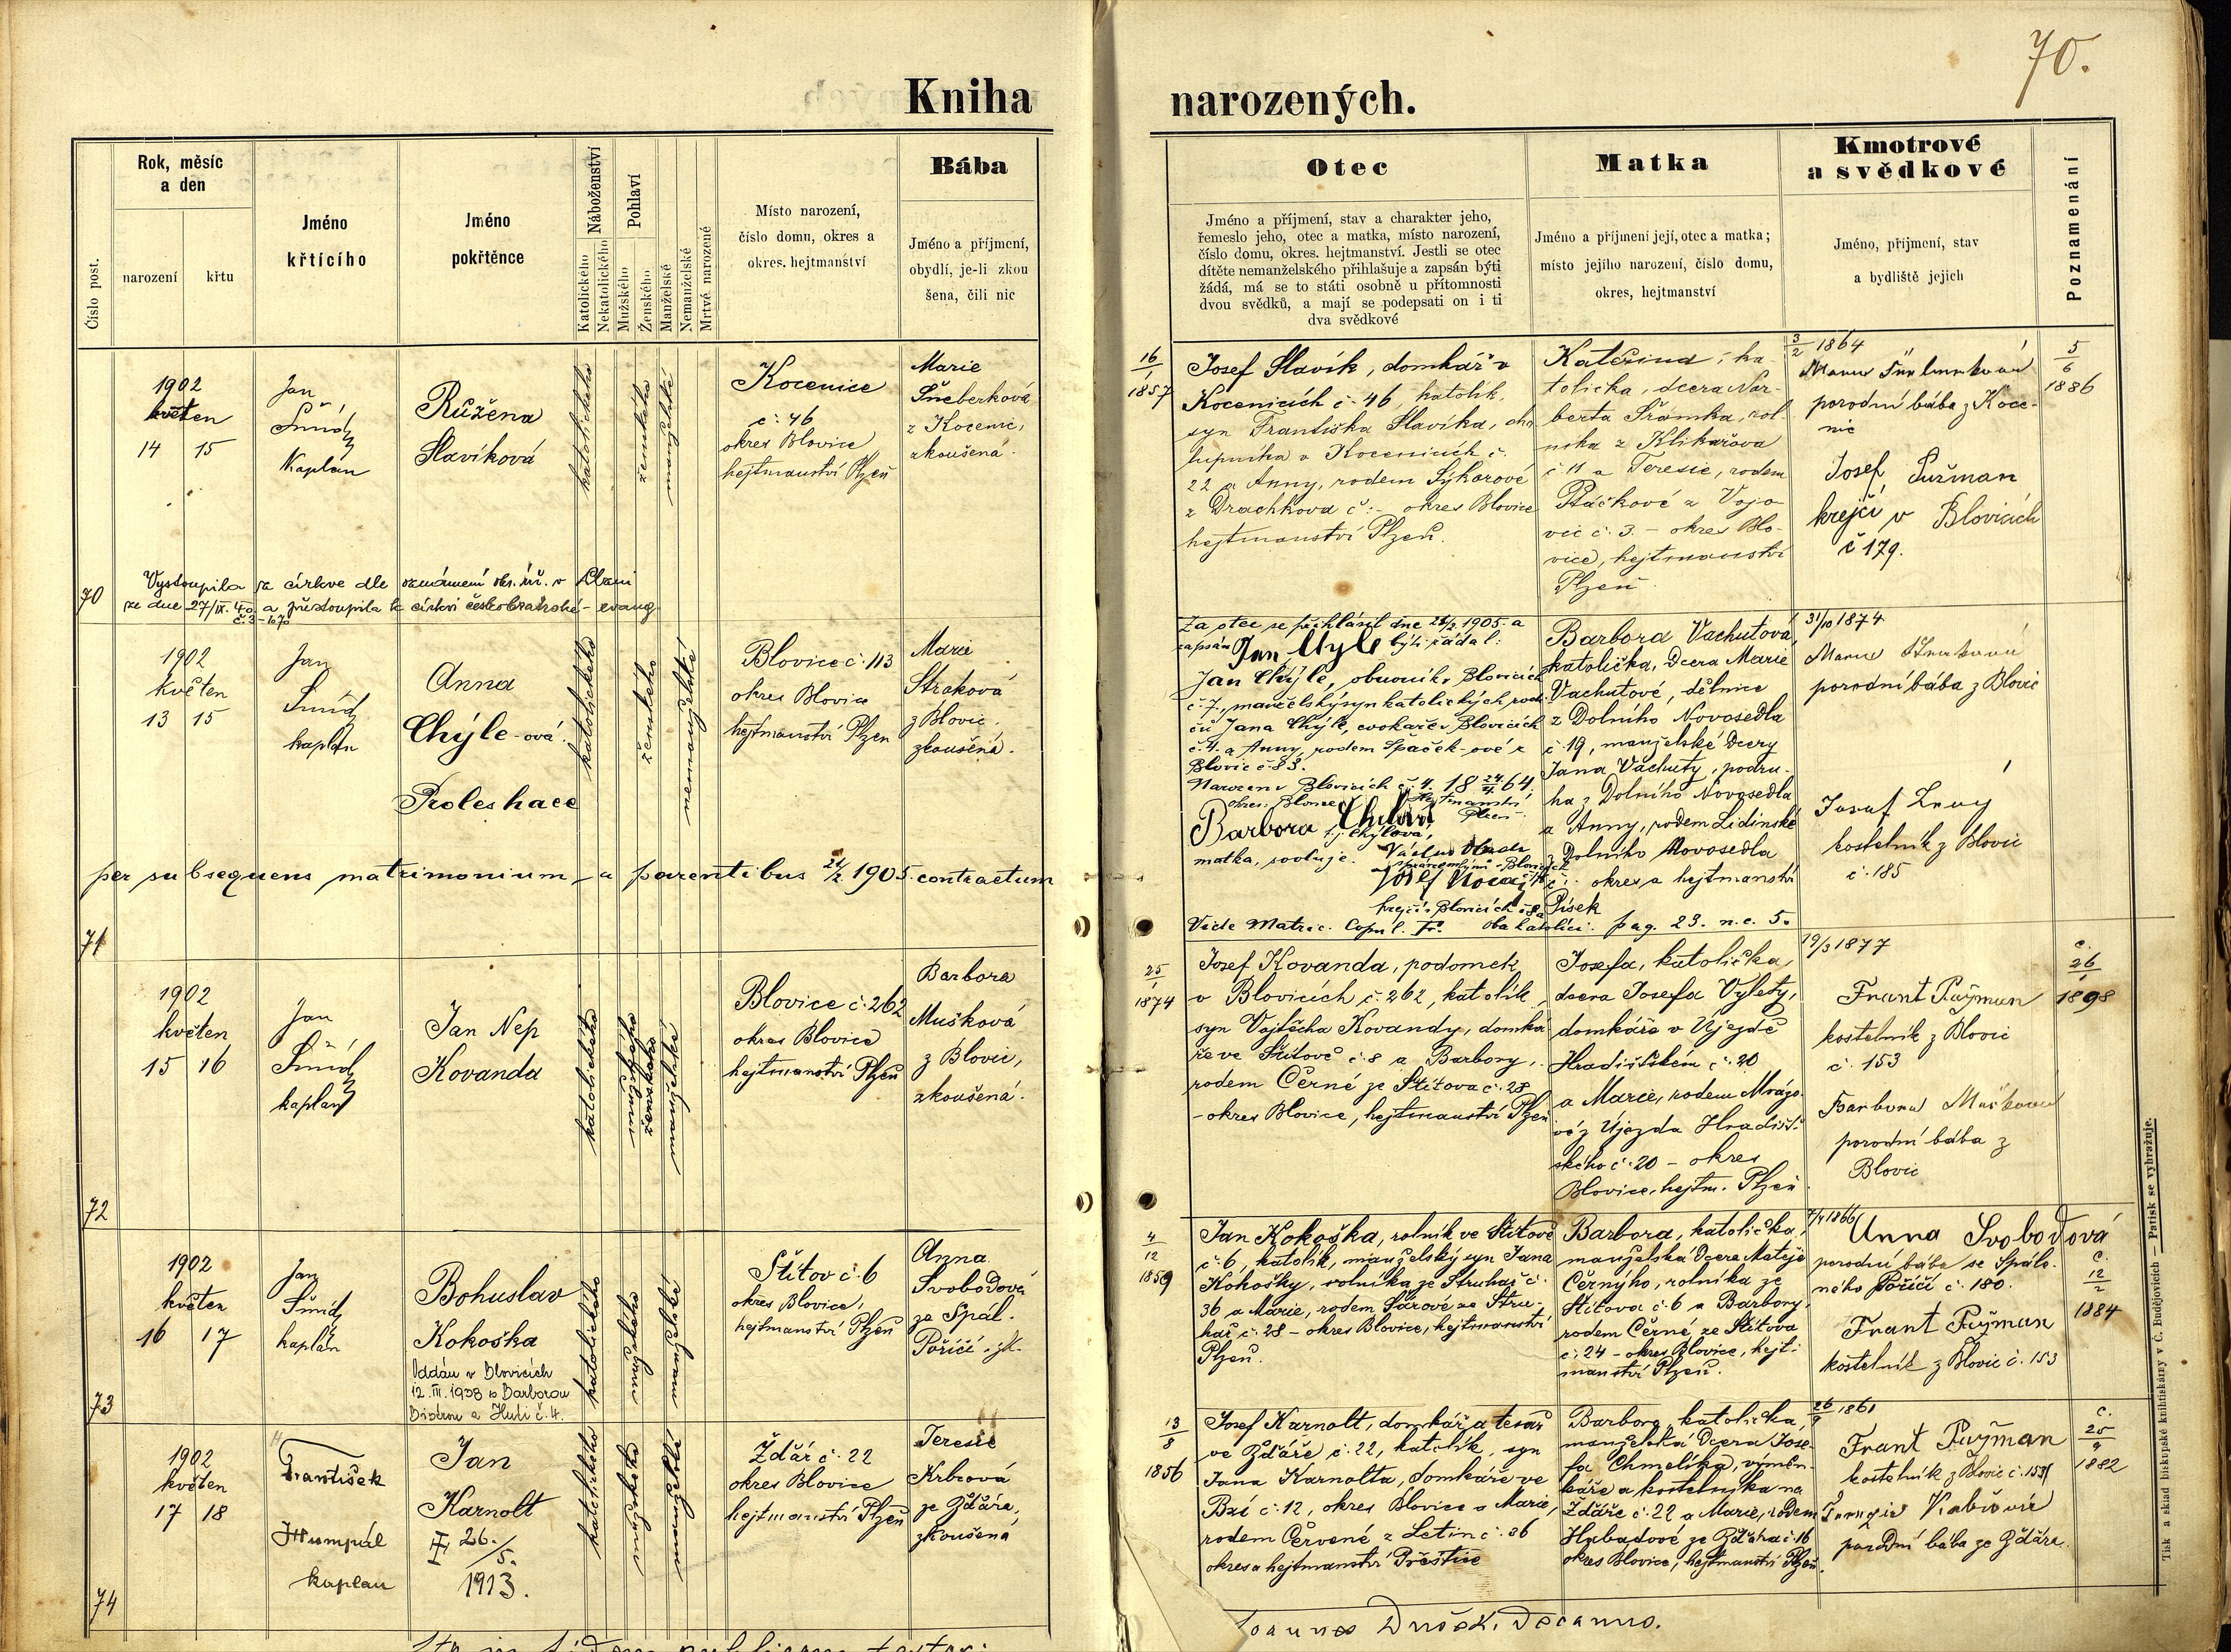 70.
Kniha
narozených.
Číslo post.
Rok, měsíc
a den
narození
křtu
Jméno
křtícího
Jméno
pokřtěnce
Náboženství
Katolického
Nekatolického
Pohlaví
Mužského
Ženského
Manželské
Nemanželské
Mrtvě narozené
Místo narození,
číslo domu, okres a
okres. hejtmanství
Bába
Jméno a příjmení,
obydlí, je-li zkou
šena, čili nic
Otec
Jméno a příjmení, stav a charakter jeho,
řemeslo jeho, otec a matka, místo narození,
číslo domu, okres. hejtmanství. Jestli se otec
dítěte nemanželského přihlašuje a zapsán býti
žádá, má se to státi osobně u přítomnosti
dvou svědků, a mají se podepsati on i ti
dva svědkové
Matka
Jméno a příjmení její, otec a matka;
místo jejího narození, číslo domu,
okres, hejtmanství
Kmotrové
a svědkové
Jméno, příjmení, stav
a bydliště jejich
Poznamenání
70
1902
květen
14 15
Jan
Šmíd
Kaplan
Růžena
Slavíková
katolického
ženského
manželské
Kocenice
č: 46
okres Blovice
hejtmanství Plzeň
Marie
Šneberková
z Kocenic,
zkoušená.
Vystoupila z církve dle oznámení okr. úř. v Plzni
ze dne 27/IX. 40 a přestoupila k církvi českobratrské - evang
16
1
1857
Josef Slavík, domkář v
Kocenicích č. 46, katolík,
syn Františka Slavíka, cha
lupníka v Kocenicích č.
22 a Anny, rodem Sýkorové
z Drachkova č: - okres Blovice
hejtmanství Plzeň.
Kateřina, ka-
tolička, dcera Nor-
berta Šrámka, rol-
níka z Klikařova
č 11 a Teresie, rodem
Ptáčkové z Vojo-
vic č. 3. - okres Blo-
vice, hejtmanství
Plzeň.
3/2 1864
porodní bába z Koce-
nic
Josef
krejčí v Blovicích
č 179.
5
6
1886
71
1902
květen
13 15
Jan
Šmíd
kaplan
Anna
Chýle-ová.
Proles hace
katolického
ženského
nemanželské
Blovice č. 113
okres Blovice
hejtmanství Plzeň
Marie
Straková
z Blovic.
zkoušená.
per subsequens matrimonium - a parentibus 21/2 1905. contractum
Za otce se přihlásil dne 21/2 1905. a
zapsán Jan Chyle býti žádal:
Jan Chýle, obuvník v Blovicích
č. 7., manželský syn katolických rodi
čů Jana Chýle, cvokaře v Blovicích
č. 4. a Anny, rodem Špaček-ové z
Blovic č. 83.
Narozen v Blovicích č. 4. 18 24/4. 64,
okres: Blovice Hejtmanství
Plzeň.
Barbora
t.j. Chýlová,
matka, svoluje.
krejčí v Blovicích
Vide Matric. Copul. Oba katolíci. pag. 23. n. c. 5.
Barbora Vachutová,
katolička, dcera Marie
Vachutové, dělnice
z Dolního Novosedla
č. 19, manželské dcery
Jana Vachuty, podru-
ha z Dolního Novosedla
a Anny, rodem Lidinské
z Dolního Novosedla
č. okres a hejtmanství
Písek
31/10 1874
porodní bába z Blovic
kostelník z Blovic
č. 185
72
1902
květen
15 16
Jan
Šmíd
kaplan
Jan Nep
Kovanda
katolického
mužského
ženského
manželské
Blovice č. 262
okres Blovice
hejtmanství Plzeň
Barbora
Mušková
z Blovic,
zkoušená.
25
1
1874
Josef Kovanda, podomek
v Blovicích č. 262, katolík,
syn Vojtěcha Kovandy, domká
ře ve Štítově č. 8 a Barbory,
rodem Černé ze Štítova č. 28
- okres Blovice, hejtmanství Plzeň
Josefa, katolička,
dcera Josefa Výlety,
domkáře v Újezdě
Hradišťském č. 20
a Marie, rodem Mrázo-
vé z Újezda Hradišť-
ského č. 20 - okres
Blovice, hejtm. Plzeň
19/3 1877
Frant Pužman
kostelník z Blovic
č. 153
Barbora Mušková
porodní bába z
Blovic
č.
26
1
1898
73
1902
květen
16 17
Jan
Šmíd
kaplan
Bohuslav
Kokoška
Oddán v Blovicích
12. III. 1938 s Barborou
katolického
mužského
manželské
Štítov č. 6
okres Blovice,
hejtmanství Plzeň
Anna
Svobodová
ze Spál.
Poříčí, zk.
4
12
1859
Jan Kokoška, rolník ve Štítově
č. 6, katolík, manželský syn Jana
Kokošky, rolníka ze Struhař č.
36 a Marie, rodem Šárové ze Stru-
hař č. 28 - okres Blovice, hejtmanství
Plzeň.
Barbora, katolička,
manželská dcera Matěje
Černýho, rolníka ze
Štítova č. 6 a Barbory,
rodem Černé ze Štítova
č. 24 - okres Blovice, hejt-
manství Plzeň.
7/4 1866
Anna Svobodová
porodní bába ze Spále-
ného Poříčí č. 180.
Frant Pužman
kostelník z Blovic č. 153
č.
12
2
1884
74
1902
květen
17 18
František
Humpál
kaplan
Jan
Karnolt
26./5.
1913.
katolického
mužského
manželské
Ždář č. 22
okres Blovice
hejtmanství Plzeň
Teresie
Krbcová
ze Ždáře,
zkoušená
13
8
1856
Josef Karnolt, domkář a tesař
ve Ždáře č. 22, katolík, syn
Jana Karnolta, domkáře ve
Bzí č. 12, okres Blovice a Marie,
rodem Červené z Letin č. 86
okres a hejtmanství Přeštice
Barbora, katolička,
manželská dcera Jose-
fa Chmelíka, výměn-
káře a kostelníka na
Ždáře č. 22 a Marie, rodem
okres Blovice, hejtmanství Plzeň.
26/9 1861
Frant Pužman
kostelník z Blovic č. 153
porodní bába ze Ždáře
č.
25
9
1882
Dušek, Decanus.
Tisk a sklad biskupské knihtiskárny v Č. Budějovicích — Patisk se vyhražuje.